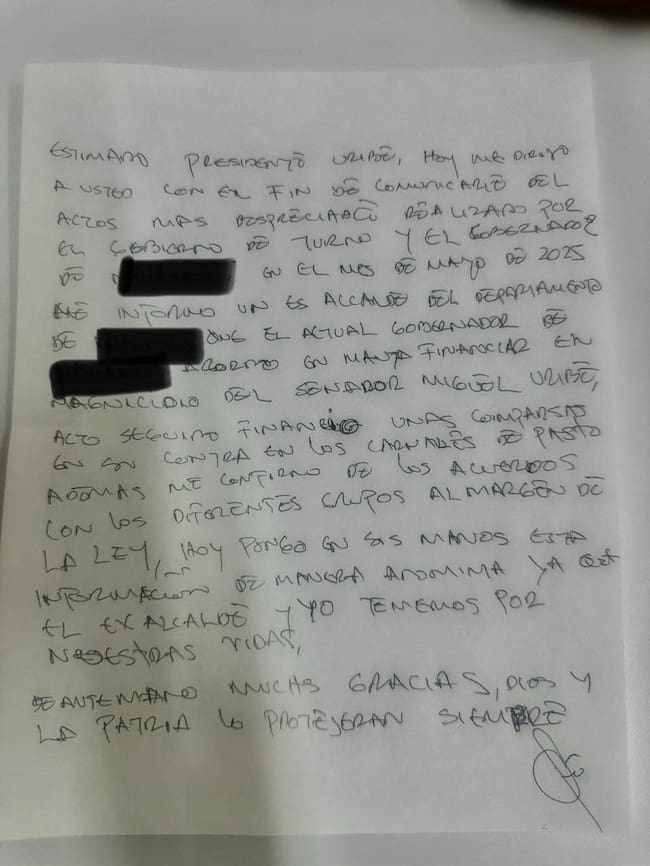 ESTIMADO PRESIDENTE URIBE, HOY ME DIRIJO
A USTED CON EL FIN DE COMUNICARLE DEL
ACTOS MAS DESPRECIABLE REALIZADO POR
EL GOBIERNO DE TURNO Y EL GOBERNADOR
DE EN EL MES DE MAYO DE 2025
ME INFORMO UN ES ALCALDE DEL DEPARTAMENTO
DE QUE EL ACTUAL GOBERNADOR DE
ACORDO EN MANTA FINANCIAR EN
MAGNICIDIO DEL SENADOR MIGUEL URIBE,
ACTO SEGUIDO FINANCIO UNAS COMPARSAS
EN SU CONTRA EN LOS CARNABLES DE PASTO
ADEMAS ME CONFIRMO DE LOS ACUERDOS
CON LOS DIFERENTES GRUPOS AL MARGEN DE
LA LEY, HOY PONGO EN SUS MANOS ESTA
INFORMACION DE MANERA ANONIMA YA QUE
EL EXALCALDE Y YO TEMEMOS POR
NUESTRAS VIDAS,
DE ANTEMANO MUCHAS GRACIAS, DIOS Y
LA PATRIA LO PROTEJERAN SIEMPRE